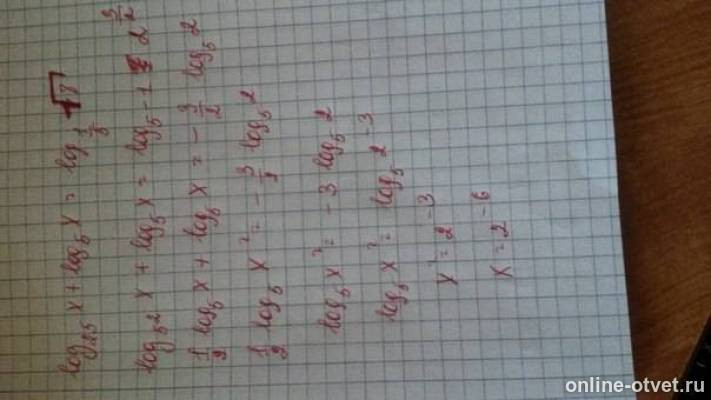 log₂₅ x + log₅ x = log_{1/5} √8
log_{5²} x + log₅ x = log_{5⁻¹} 2^{3/2}
1/2 log₅ x + log₅ x = - 3/2 log₅ 2
1/2 log₅ x² = - 3/2 log₅ 2
log₅ x² = - 3 log₅ 2
log₅ x² = log₅ 2⁻³
x² = 2⁻³
x = 2⁻⁶
online-otvet.ru